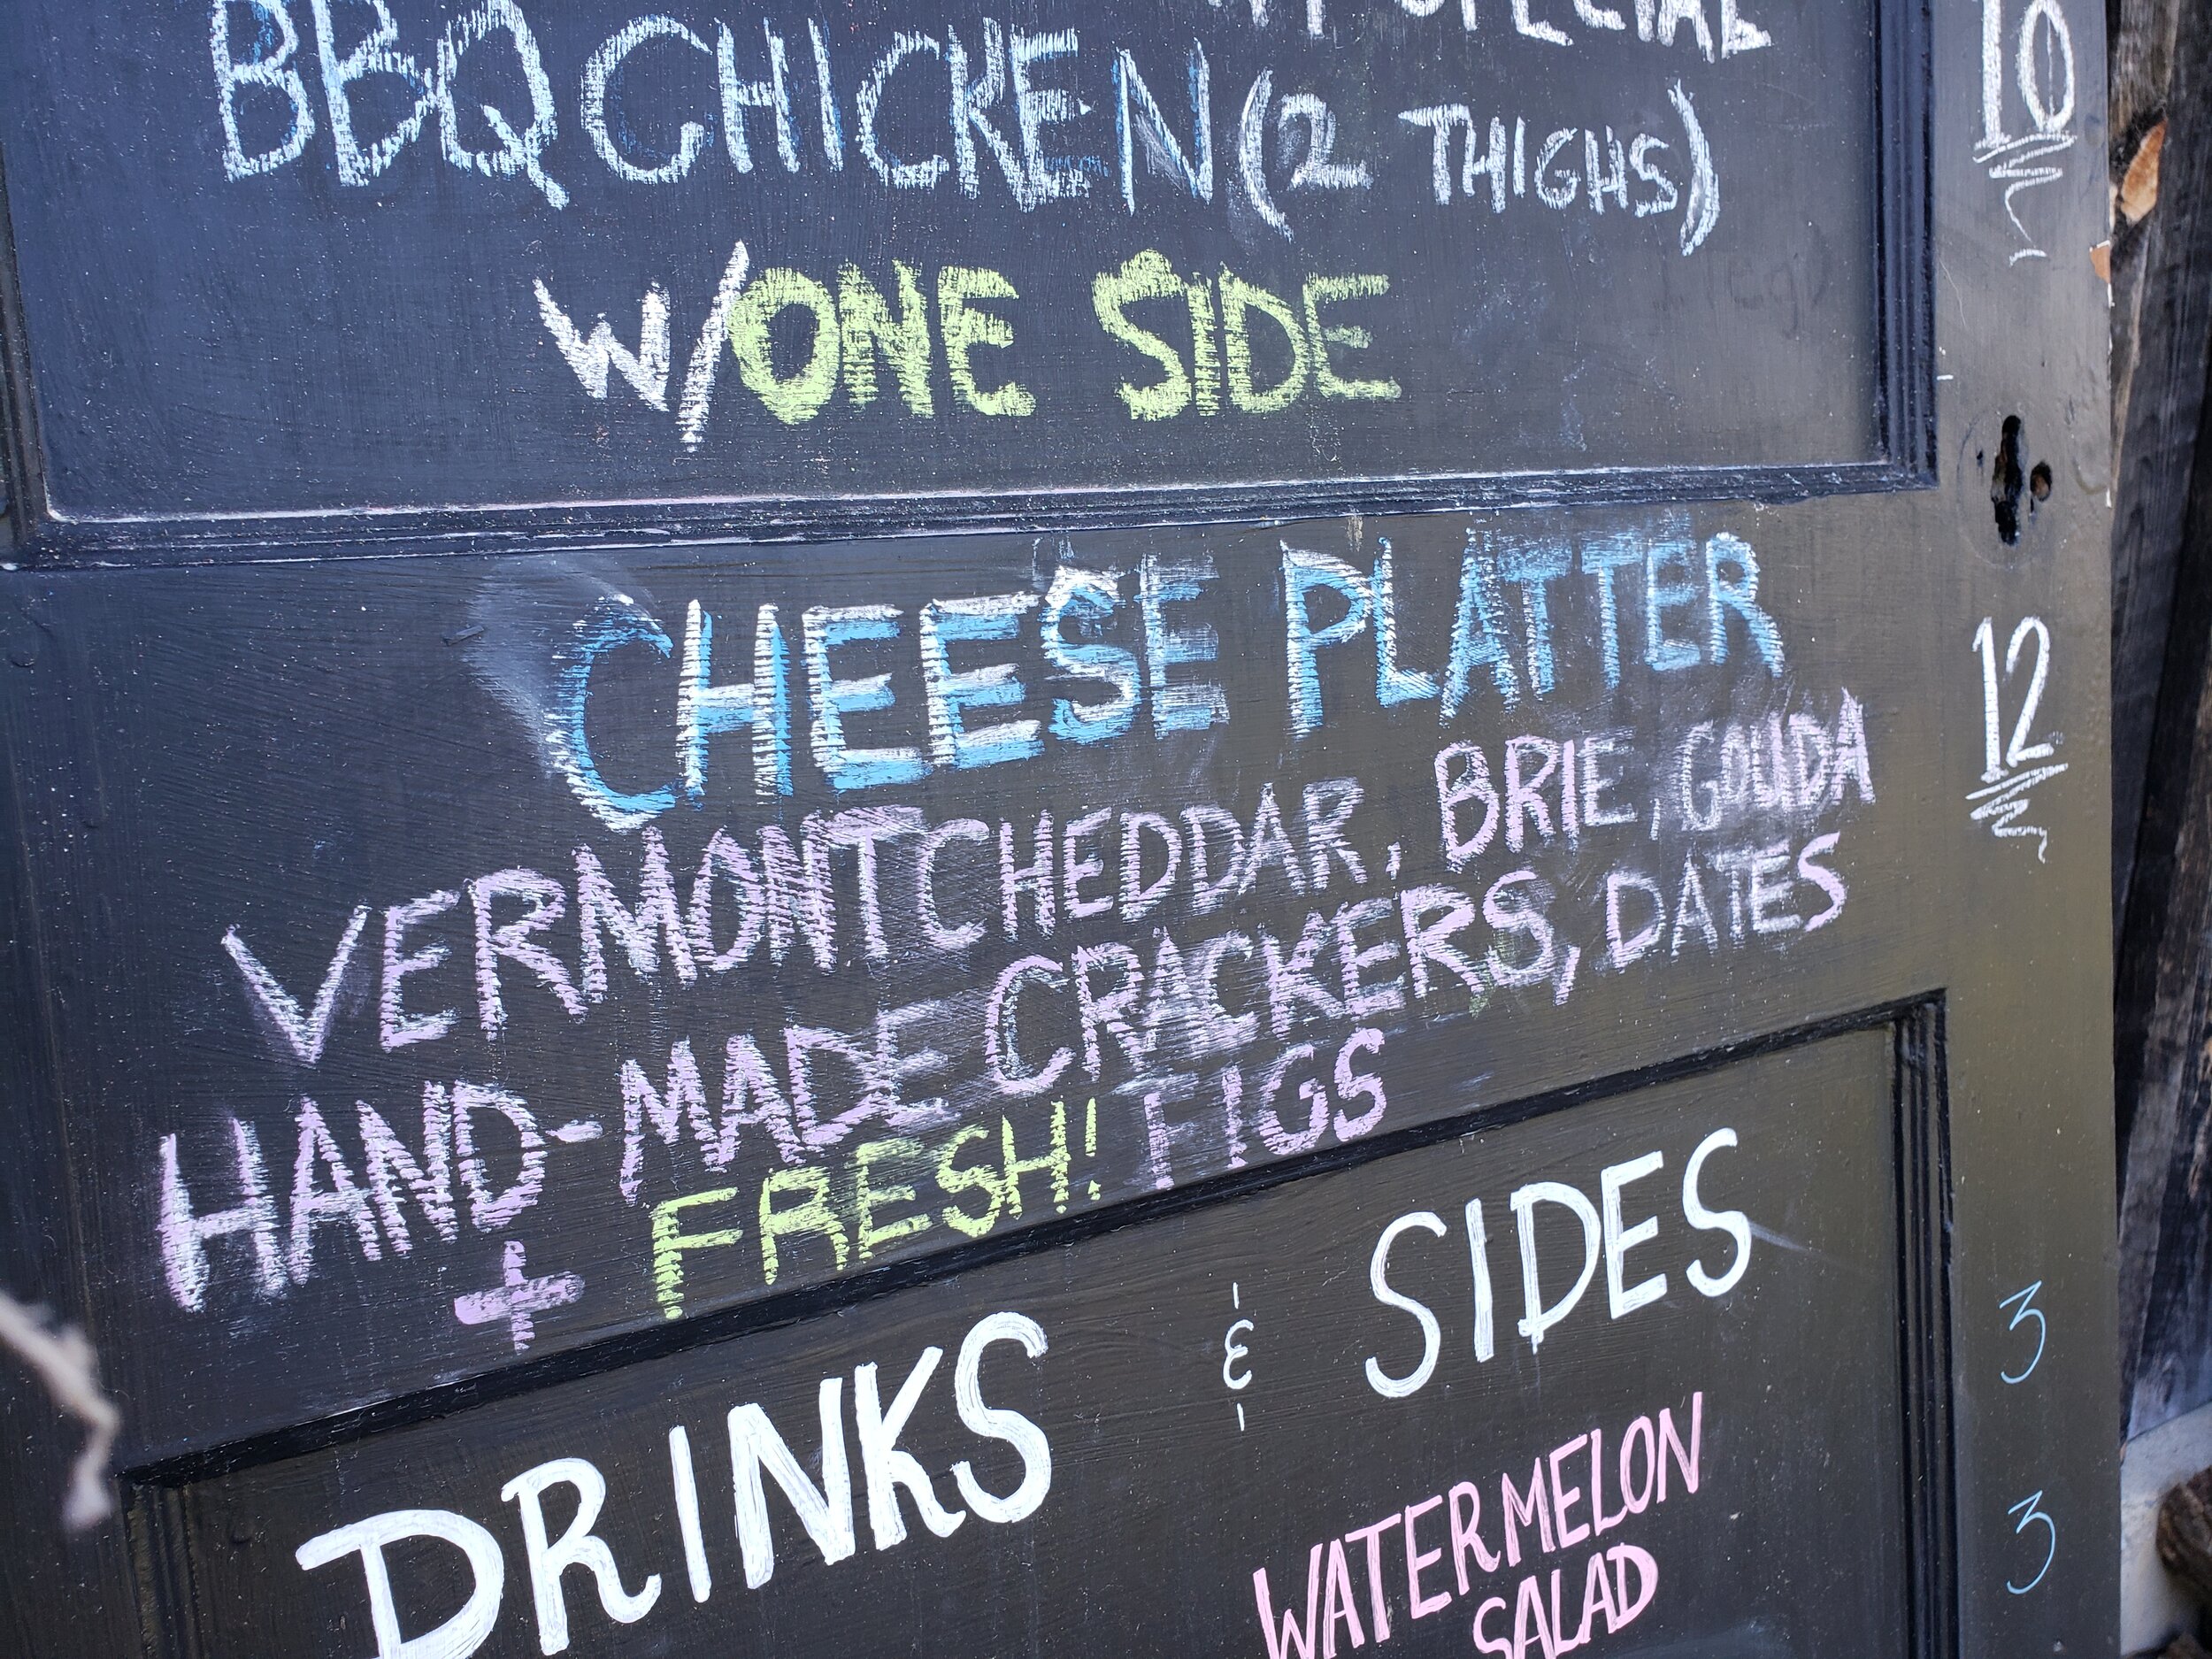 SPECIAL
BBQ CHICKEN (2 THIGHS) 10
W/ONE SIDE
CHEESE PLATTER 12
VERMONT CHEDDAR, BRIE, GOUDA
HAND-MADE CRACKERS, DATES
+ FRESH! FIGS
DRINKS & SIDES
3
WATERMELON 3
SALAD